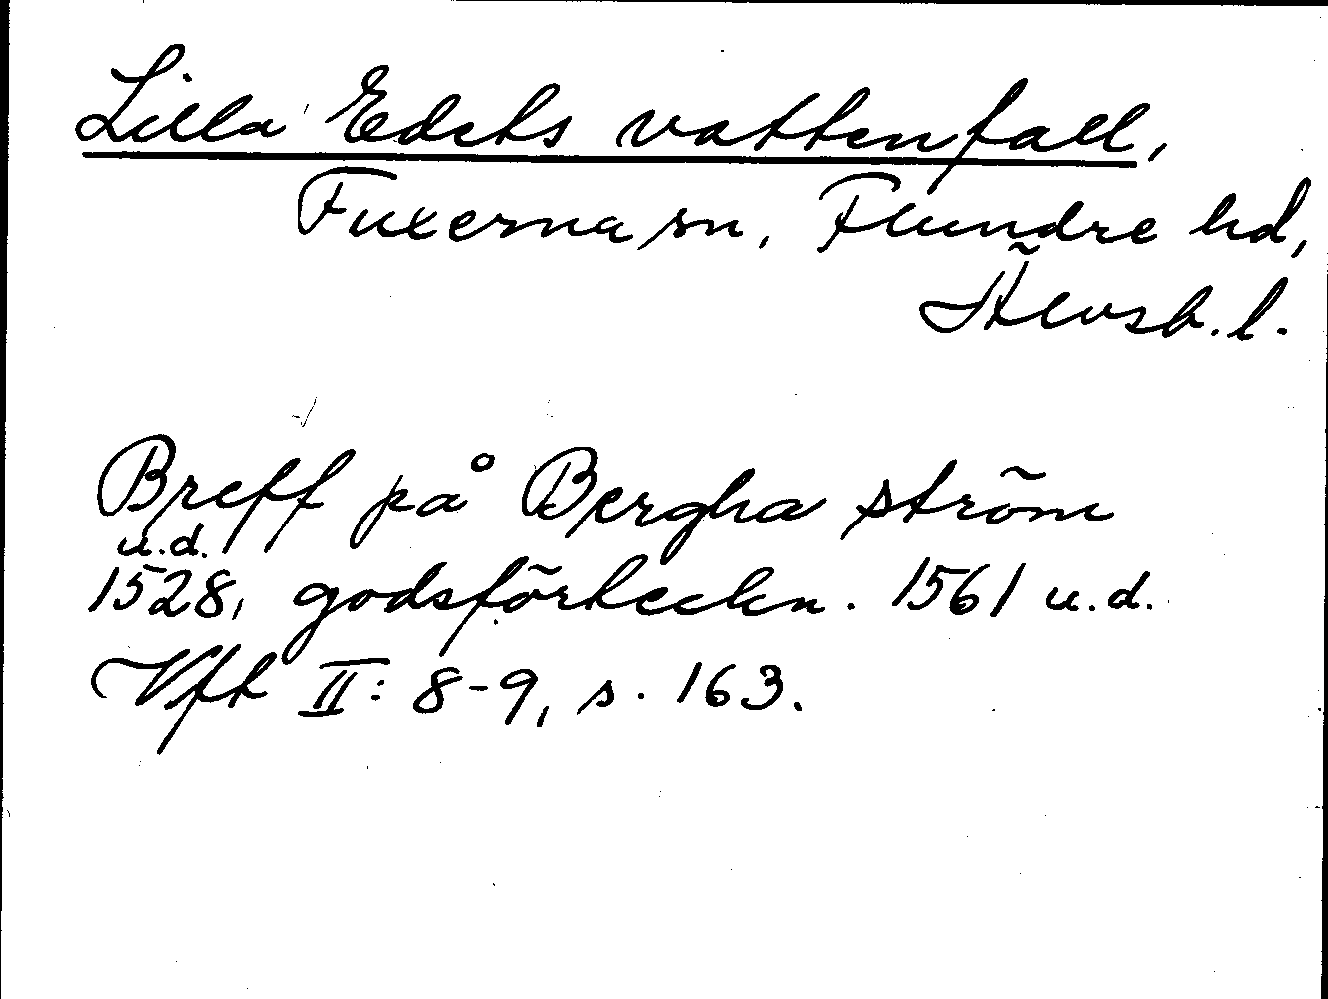 Lilla Edets vattenfall,
Fuxerna sn, Flundre hd,
Älvsb. l.
Breff på Bergha ström
u.d.
1528, godsförteckn. 1561 u.d.
Vft II: 8-9, s. 163.